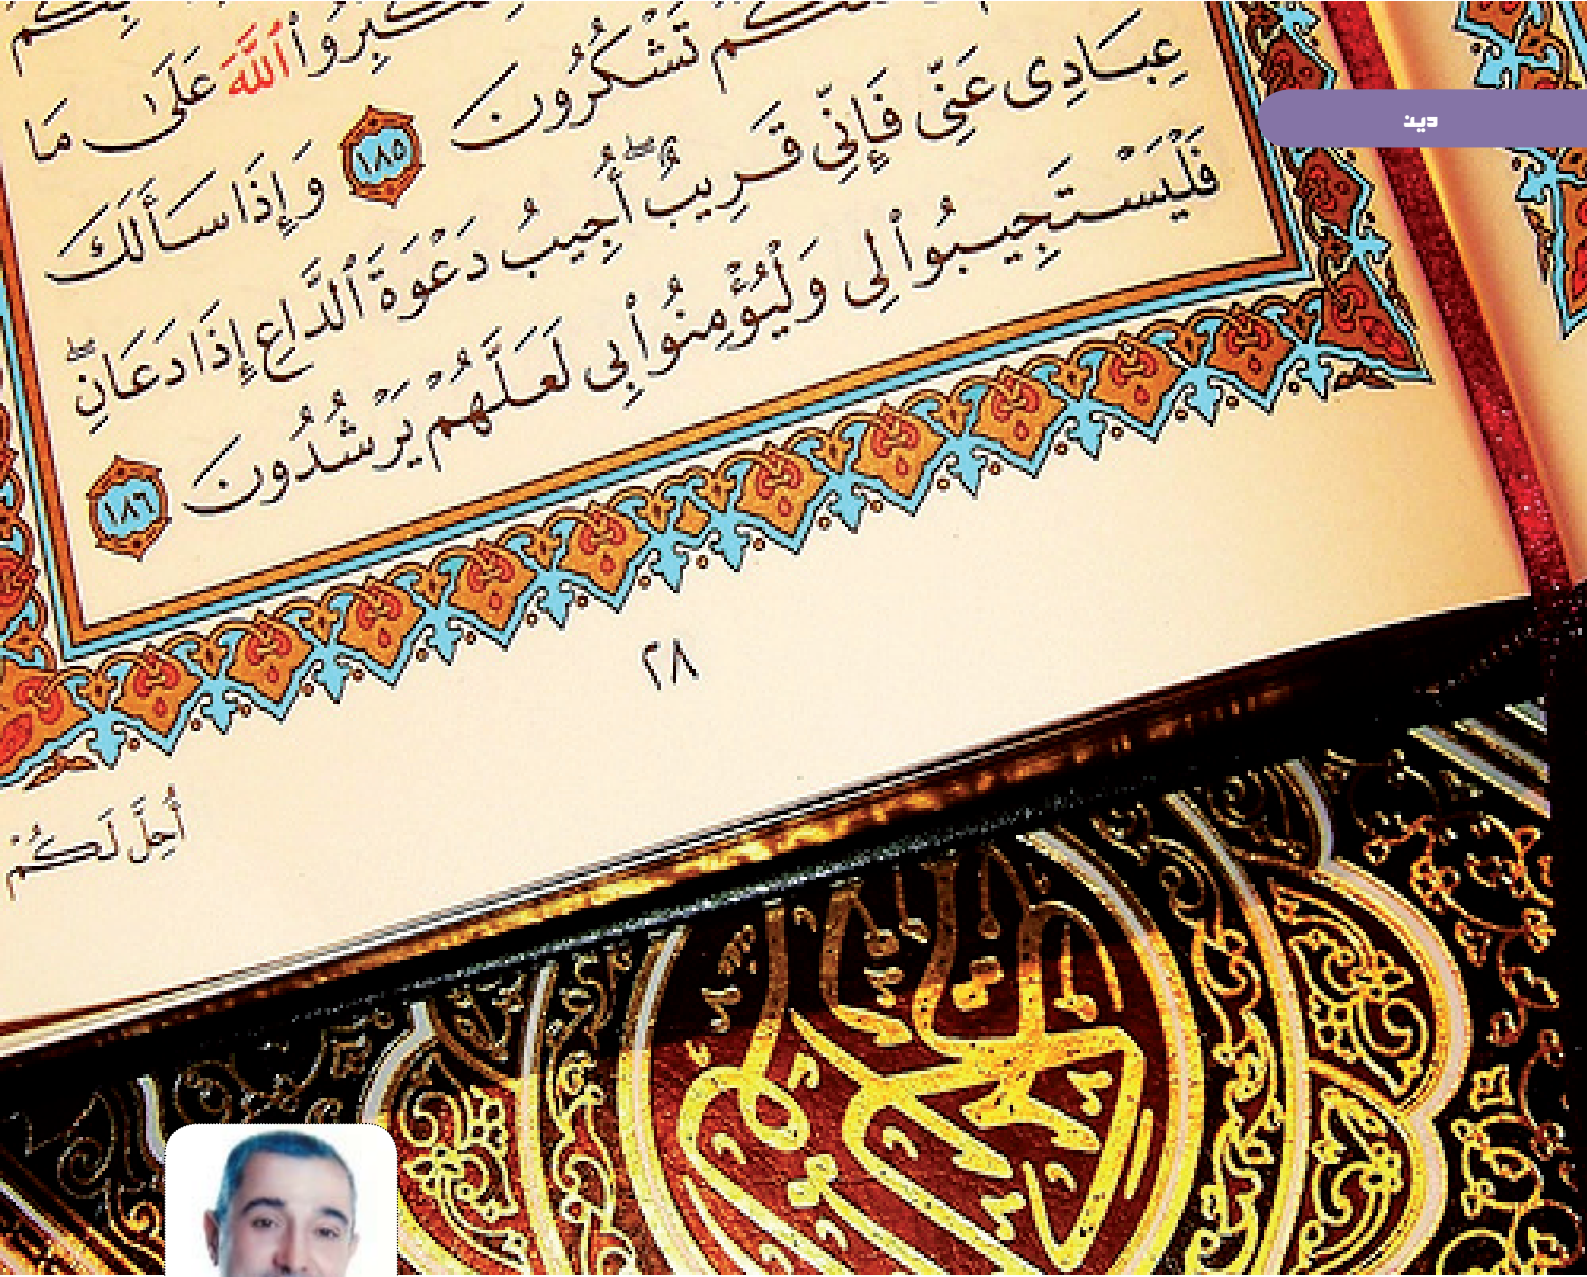 دين
وَلِتُكَبِّرُوا۟ ٱللَّهَ عَلَىٰ مَا
تَشْكُرُونَ ١٨٥ وَإِذَا سَأَلَكَ
عِبَادِى عَنِّى فَإِنِّى قَرِيبٌ ۖ أُجِيبُ دَعْوَةَ ٱلدَّاعِ إِذَا دَعَانِ ۖ
فَلْيَسْتَجِيبُوا۟ لِى وَلْيُؤْمِنُوا۟ بِى لَعَلَّهُمْ يَرْشُدُونَ ١٨٦
٢٨
أُحِلَّ لَكُمْ